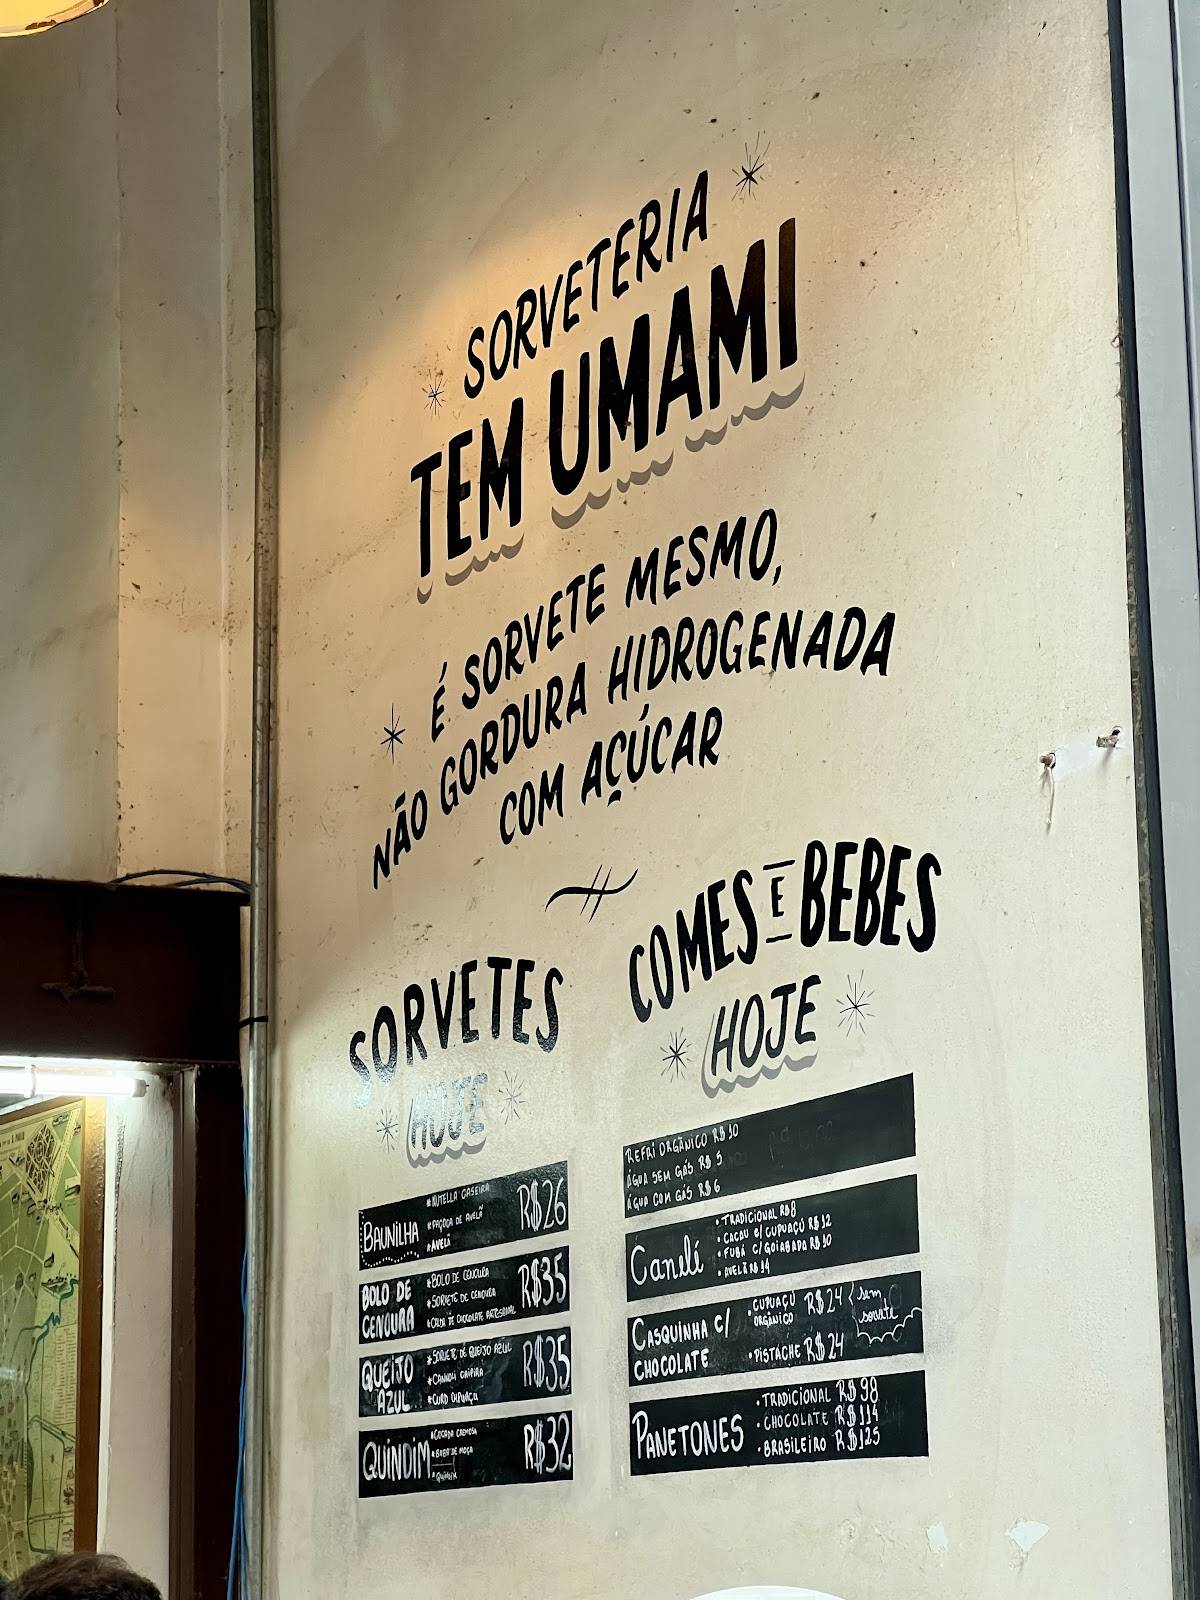 SORVETERIA
TEM UMAMI
É SORVETE MESMO,
NÃO GORDURA HIDROGENADA
COM AÇÚCAR
SORVETES
HOJE
BAUNILHA
*NUTELLA CASEIRA
*PAÇOCA DE AVELÃ
*AVELÃ
R$26
BOLO DE
CENOURA
*BOLO DE CENOURA
*SORVETE DE CENOURA
*CALDA DE CHOCOLATE ARTESANAL
R$35
QUEIJO
AZUL
*SORVETE DE QUEIJO AZUL
*CANNOLI CAIPIRA
*CURD CUPUAÇU
R$35
QUINDIM
*COCADA CREMOSA
*BABA DE MOÇA
*QUINDIM
R$32
COMES E BEBES
HOJE
REFRI ORGÂNICO R$10
ÁGUA SEM GÁS R$5
ÁGUA COM GÁS R$6
Canelé
• TRADICIONAL R$8
• CACAU C/ CUPUAÇU R$12
• FUBÁ C/ GOIABADA R$10
• AVELÃ R$14
CASQUINHA C/
CHOCOLATE
• CUPUAÇU
ORGÂNICO
R$24
sem
sorvete
• PISTACHE R$24
PANETONES
• TRADICIONAL R$98
• CHOCOLATE R$114
• BRASILEIRO R$125